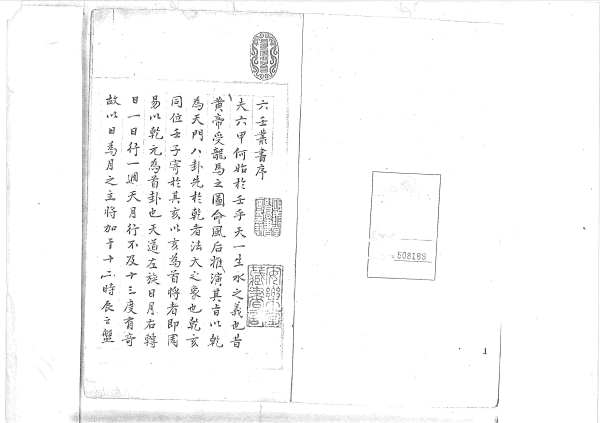 六壬叢書序
夫六甲何始於壬乎天一生水之義也昔
黃帝受龍馬之圖命風后推演其旨以乾
為天門八卦先於乾者法天之象也乾亥
同位壬子寄於其亥以亥為首將者即周
易以乾元為首卦也天道左旋日月右轉
日一日行一週天月行不及十三度有奇
故以日為月之主將加于十二時辰之盤
508189
1